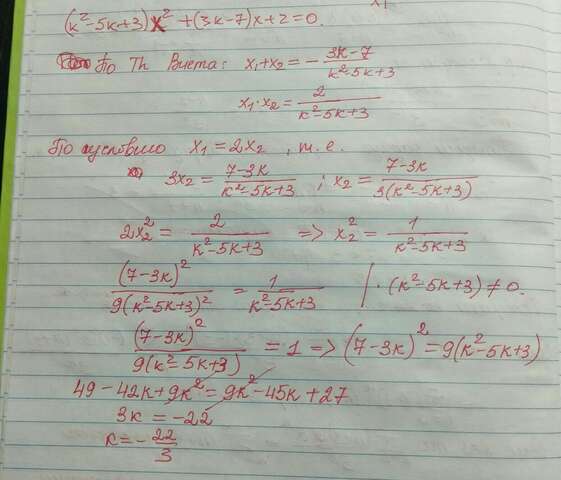 (k²-5k+3)x² + (3k-7)x+2=0.
По Th Виета: x₁+x₂ = - (3k-7)/(k²-5k+3)
x₁·x₂ = 2/(k²-5k+3)
По условию x₁=2x₂, т.е.
3x₂ = (7-3k)/(k²-5k+3) ; x₂ = (7-3k)/(3(k²-5k+3))
2x₂² = 2/(k²-5k+3) => x₂² = 1/(k²-5k+3)
(7-3k)²/(9(k²-5k+3)²) = 1/(k²-5k+3) | ·(k²-5k+3) ≠ 0.
(7-3k)²/(9(k²-5k+3)) = 1 => (7-3k)² = 9(k²-5k+3)
49-42k+9k² = 9k²-45k+27
3k = -22
k = - 22/3